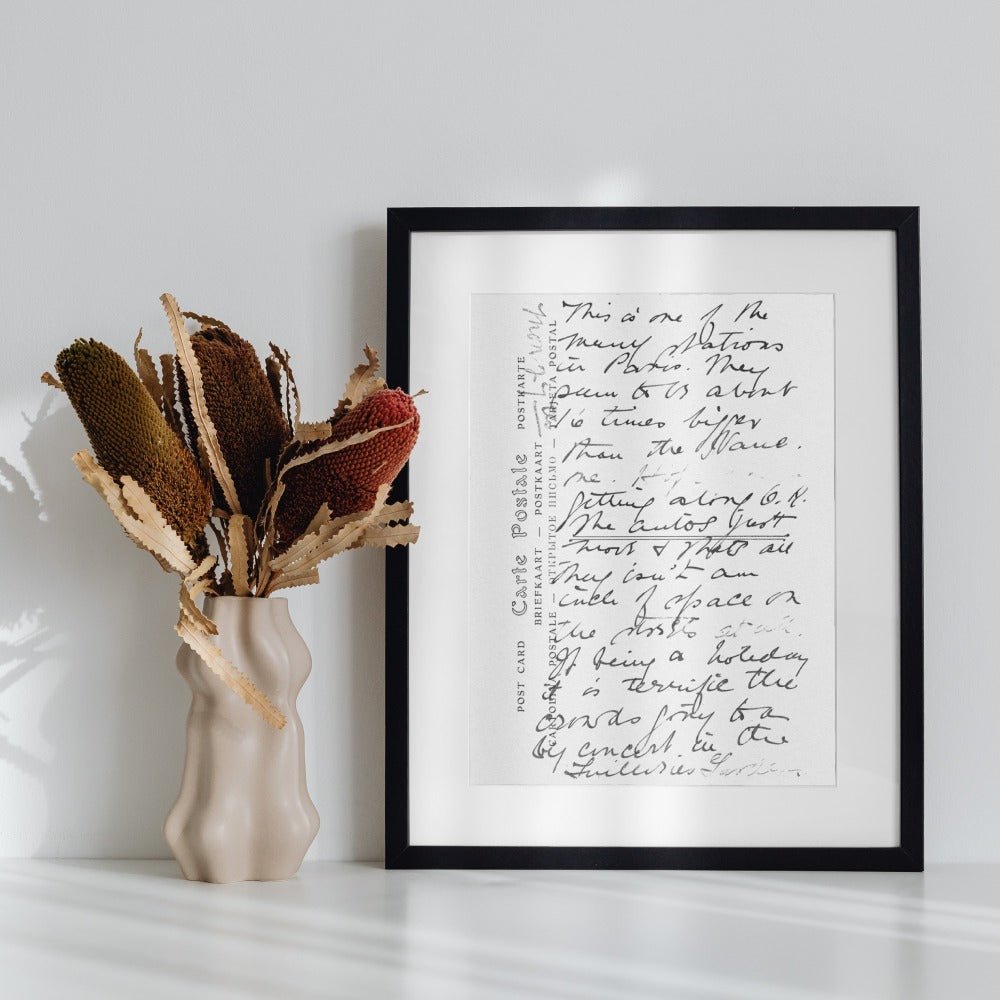 This is one of the
many stations
in Paris. They
seem to us about
16 times bigger
than the
one.
getting along O.K.
The autos just
& that's all
They isn't an
inch of space on
the streets at all.
It being a holeday
it is terrific the
crowds going to a
by concert in the
Tuilleries Garden
POST CARD
Carte Postale
POSTKARTE
BRIEFKAART — POSTKAART
CARTOLINA POSTALE — ОТКРЫТОЕ ПИСЬМО — TARJETA POSTAL